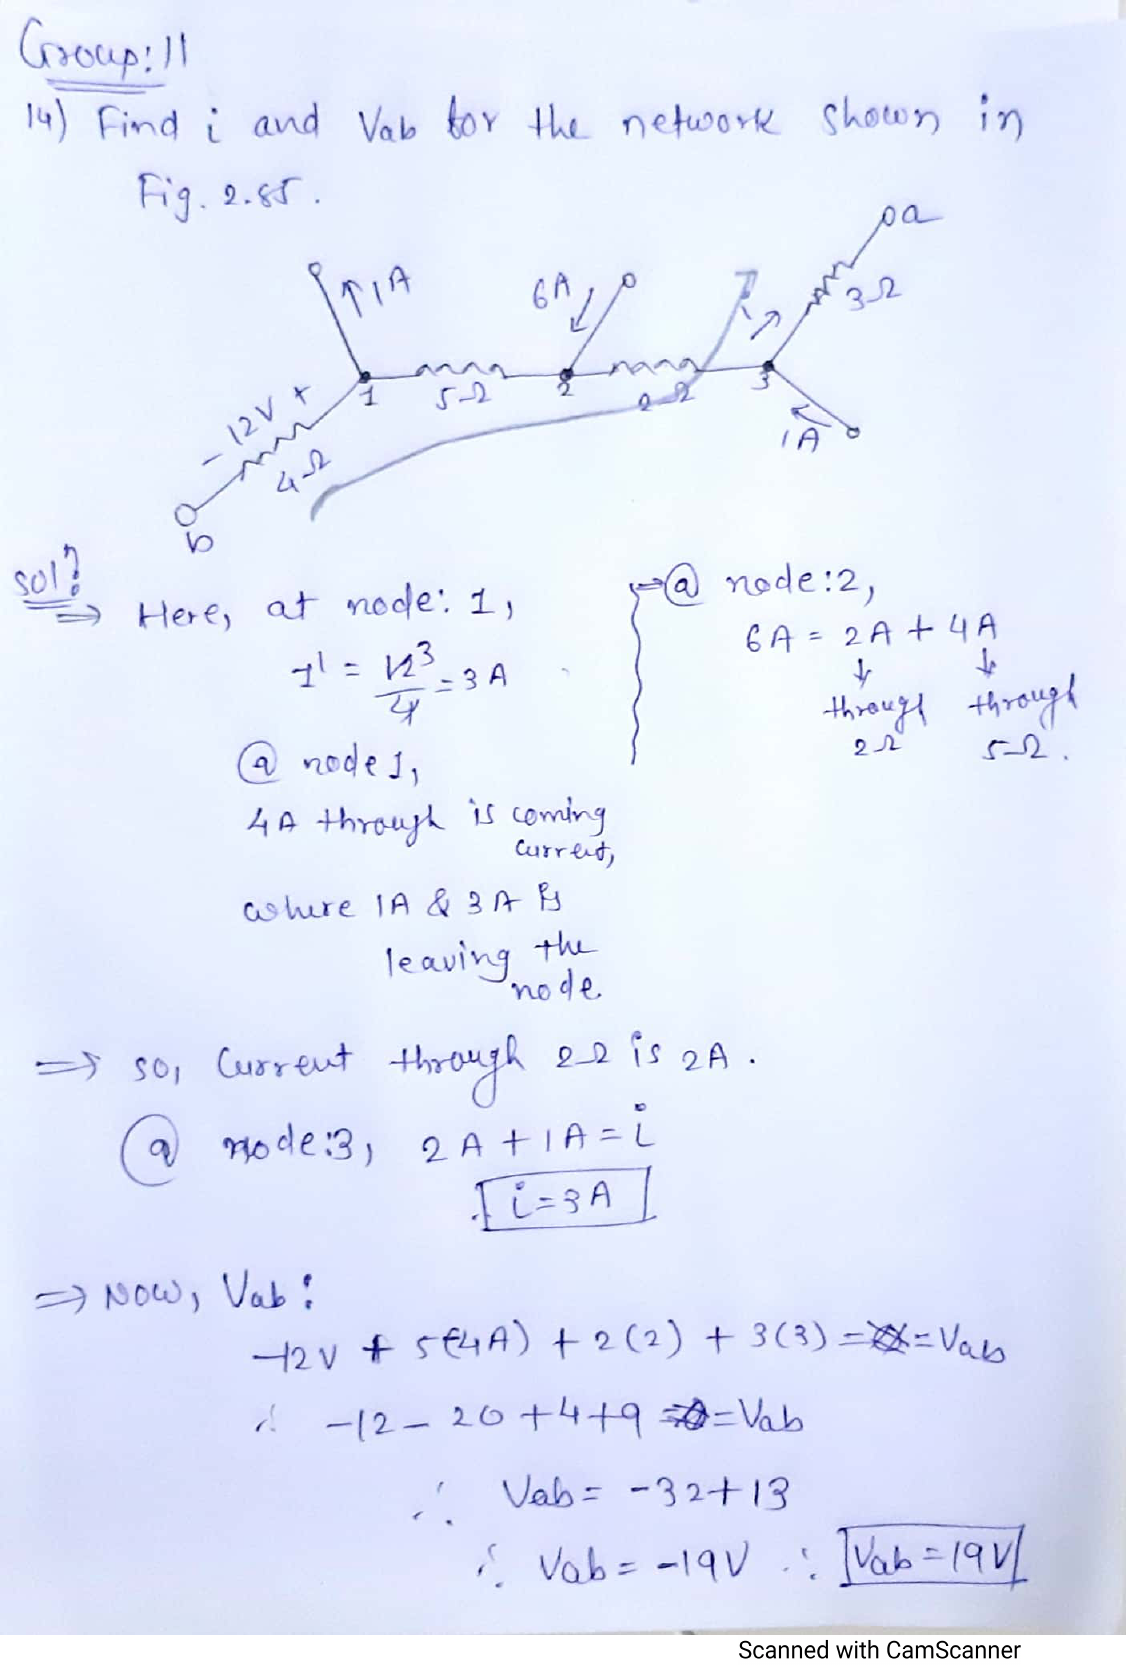 Group: 11
14) Find i and Vab for the network shown in
Fig. 2.85.
a
↑1A
6A
3Ω
i
- 12V +
1
5Ω
2
2Ω
3
1A
4Ω
b
Sol?
⇒ Here, at node: 1,
I' = 12/4 3 = 3A
@ node 1,
4A through is coming
current,
where 1A & 3A is
leaving the
node.
→ @ node: 2,
6A = 2A + 4A
↓ ↓
through through
2Ω 5Ω.
⇒ so, Current through 2Ω is 2A.
@ node: 3, 2A + 1A = i
i = 3A
⇒ Now, Vab:
-12V + 5(-4A) + 2(2) + 3(3) = = Vab
∴ -12 - 20 + 4 + 9 = = Vab
∴ Vab = -32 + 13
∴ Vab = -19V ∴ Vab = 19V
Scanned with CamScanner